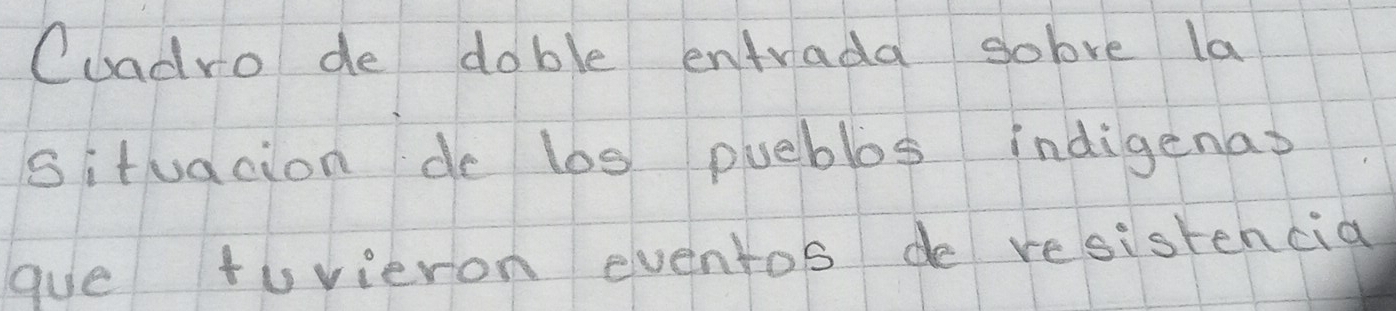 Cuadro de doble entrada sobre la
situacion de los pueblos indigenas
que tuvieron eventos de resistencia